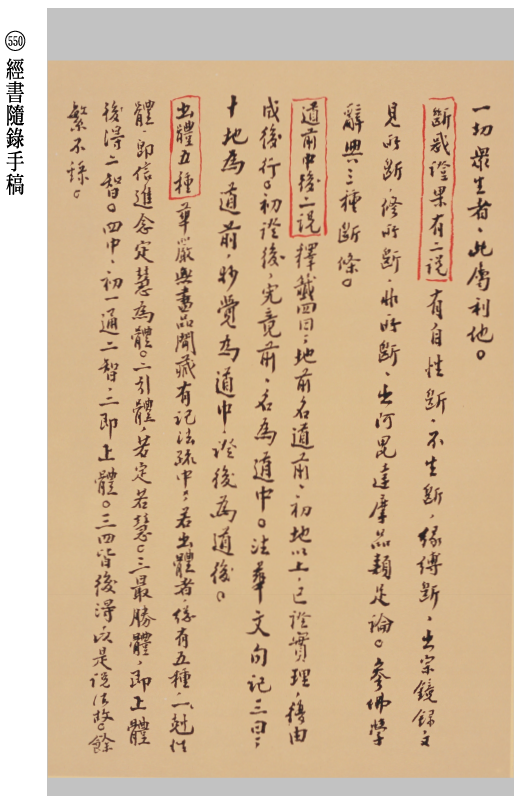 550 經書隨錄手稿
一切眾生者、此屬利他。
斷惑證果有二說 有自性斷、不生斷、緣縛斷、出宗鏡錄文
見所斷、修所斷、非所斷、出阿毘達摩品類足論。參佛學
辭典三種斷條。
道前中後二說 釋籤四曰、地前名道前、初地以上、已證實理、後由
成後行。初證後、究竟前、名為道中。法華文句記三曰、
十地為道前、妙覺為道中、證後為道後。
出體五種 華嚴與畫品聞藏有記法疏中、若出體者、總有五種、一、剋性
體、即信進念定慧為體。二引體、若定若慧。三最勝體、即上體
後得二智。四中、初一通二智、二即上體。三四皆後得、以是說法故。餘
繁不錄。